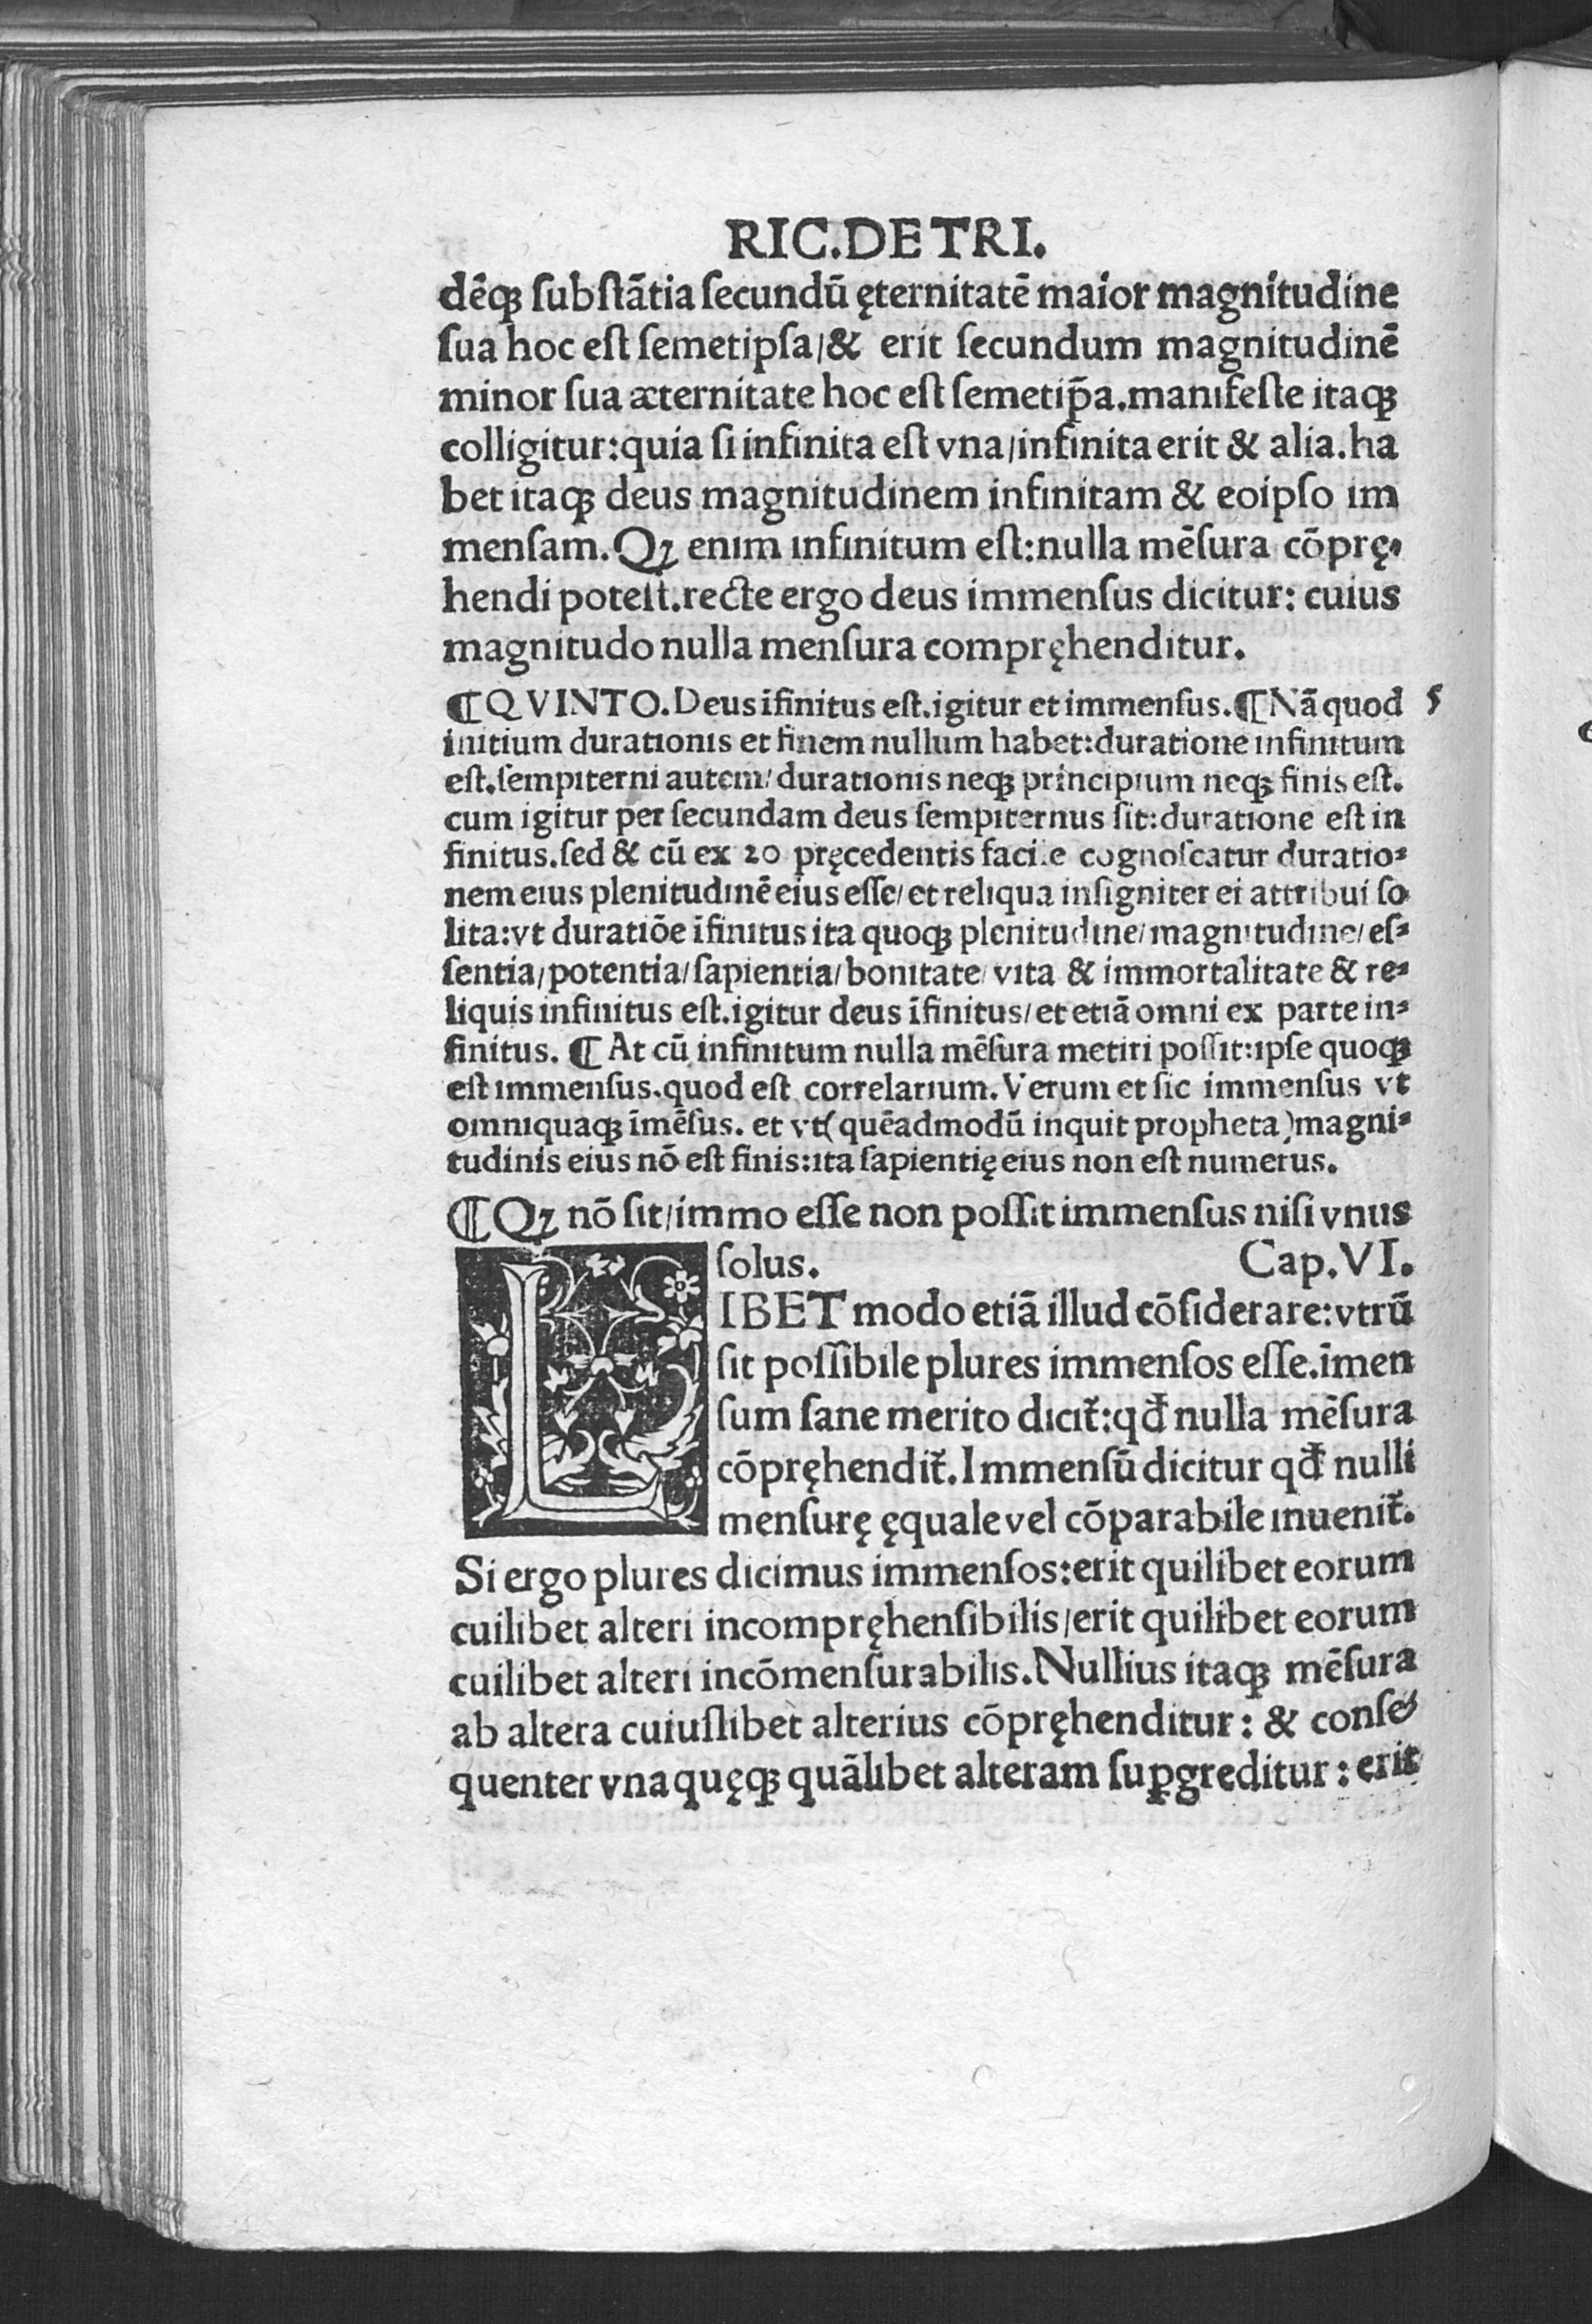 RIC.DE TRI.
dēqꝫ ſubſtātia ſecundū ęternitatē maior magnitudine
ſua hoc eſt ſemetipſa/& erit ſecundum magnitudinē
minor ſua æternitate hoc eſt ſemetip̄a.manifeſte itaqꝫ
colligitur:quia ſi infinita eſt vna/infinita erit & alia.ha
bet itaqꝫ deus magnitudinem infinitam & eoipſo im
menſam.Qꝫ enim infinitum eſt:nulla mēſura cōprę-
hendi poteſt.recte ergo deus immenſus dicitur: cuius
magnitudo nulla menſura compręhenditur.
¶QVINTO.Deus īfinitus eſt.igitur et immenſus.¶Nā quod 5
initium durationis et finem nullum habet:duratione infinitum
eſt.ſempiterni autem/durationis neqꝫ principium neqꝫ finis eſt.
cum igitur per ſecundam deus ſempiternus ſit:duratione eſt in
finitus.ſed & cū ex 20 pręcedentis facile cognoſcatur duratio⸗
nem eius plenitudinē eius eſſe/et reliqua inſigniter ei attribui ſo
lita:vt duratiōe īfinitus ita quoqꝫ plenitudine/magnitudine/eſ⸗
ſentia/potentia/ſapientia/bonitate/vita & immortalitate & re⸗
liquis infinitus eſt.igitur deus īfinitus/et etiā omni ex parte in⸗
finitus. ¶ At cū infinitum nulla mēſura metiri poſſit:ipſe quoqꝫ
eſt immenſus.quod eſt correlarium.Verum et ſic immenſus vt
omniquaqꝫ īmēſus. et vt(quēadmodū inquit propheta)magni⸗
tudinis eius nō eſt finis:ita ſapientię eius non eſt numerus.
¶Qꝫ nō ſit/immo eſſe non poſſit immenſus niſi vnus
ſolus. Cap.VI.
LIBET modo etiā illud cōſiderare:vtrū
ſit poſſibile plures immenſos eſſe.īmen
ſum ſane merito dicit̃:qđ nulla mēſura
cōpręhendit̃.Immenſū dicitur qđ nulli
menſurę ęquale vel cōparabile inuenit̃.
Si ergo plures dicimus immenſos:erit quilibet eorum
cuilibet alteri incompręhenſibilis/erit quilibet eorum
cuilibet alteri incōmenſurabilis.Nullius itaqꝫ mēſura
ab altera cuiuſlibet alterius cōpręhenditur: & conſe
quenter vnaquęqꝫ quālibet alteram ſuꝑgreditur: erit